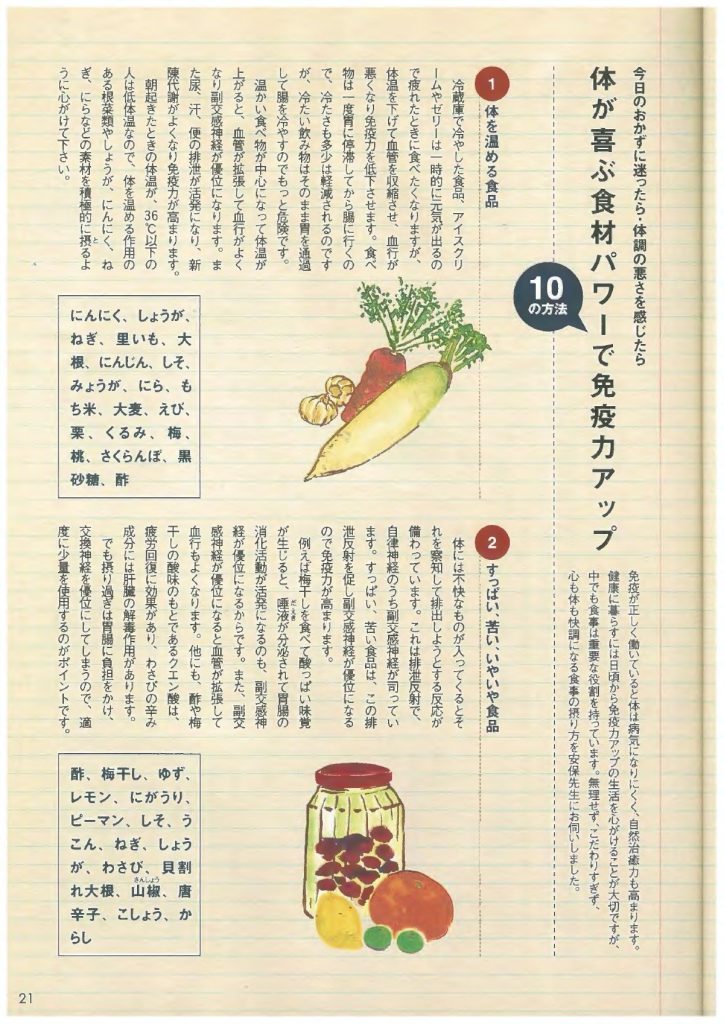 今日のおかずに迷ったら・体調の悪さを感じたら
体が喜ぶ食材パワーで免疫力アップ
10
の方法
免疫が正しく働いていると体は病気になりにくく、自然治癒力も高まります。
健康に暮らすには日頃から免疫力アップの生活を心がけることが大切ですが、
中でも食事は重要な役割を持っています。無理せず、こだわりすぎず、
心も体も快調になる食事の摂り方を安保先生にお伺いしました。
1 体を温める食品
冷蔵庫で冷やした食品、アイスクリ
ームやゼリーは一時的に元気が出るの
で疲れたときに食べたくなりますが、
体温を下げて血管を収縮させ、血行が
悪くなり免疫力を低下させます。食べ
物は一度胃に停滞してから腸に行くの
で、冷たさも多少は軽減されるのです
が、冷たい飲み物はそのまま胃を通過
して腸を冷やすのでもっと危険です。
温かい食べ物が中心になって体温が
上がると、血管が拡張して血行がよく
なり副交感神経が優位になります。ま
た尿、汗、便の排泄が活発になり、新
陳代謝がよくなり免疫力が高まります。
朝起きたときの体温が、36℃以下の
人は低体温なので、体を温める作用の
ある根菜類やしょうが、にんにく、ね
ぎ、にらなどの素材を積極的に摂るよ
うに心がけて下さい。
にんにく、しょうが、
ねぎ、里いも、大
根、にんじん、しそ、
みょうが、にら、も
ち米、大麦、えび、
栗、くるみ、梅、
桃、さくらんぼ、黒
砂糖、酢
2 すっぱい、苦い、いやいや食品
体には不快なものが入ってくるとそ
れを察知して排出しようとする反応が
備わっています。これは排泄反射で、
自律神経のうち副交感神経が司ってい
ます。すっぱい、苦い食品は、この排
泄反射を促し副交感神経が優位になる
ので免疫力が高まります。
例えば梅干しを食べて酸っぱい味覚
が生じると、唾液が分泌されて胃腸の
消化活動が活発になるのも、副交感神
経が優位になるからです。また、副交
感神経が優位になると血管が拡張して
血行もよくなります。他にも、酢や梅
干しの酸味のもとであるクエン酸は、
疲労回復に効果があり、わさびの辛み
成分には肝臓の解毒作用があります。
でも摂り過ぎは胃腸に負担をかけ、
交換神経を優位にしてしまうので、適
度に少量を使用するのがポイントです。
酢、梅干し、ゆず、
レモン、にがうり、
ピーマン、しそ、う
こん、ねぎ、しょう
が、わさび、貝割
れ大根、山椒、唐
辛子、こしょう、か
らし
21